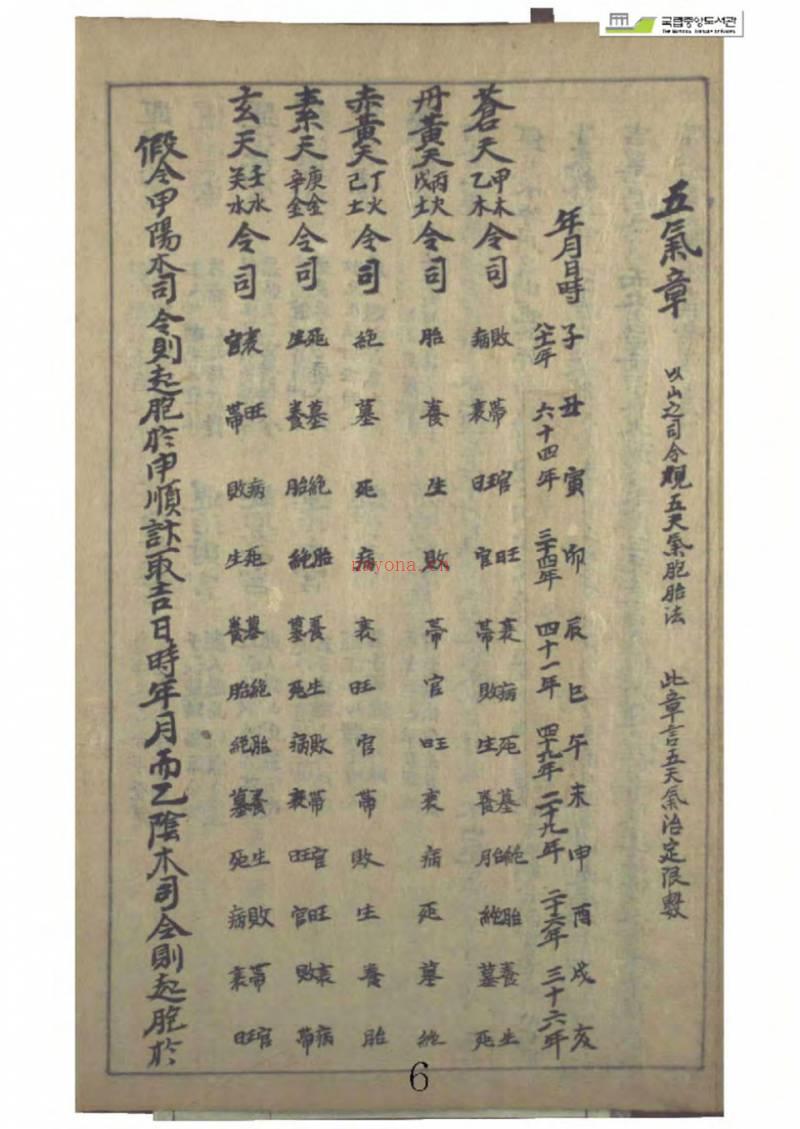 국립중앙도서관
The National Library of Korea
五氣章 以山之司令觀五天氣胞胎法 此章言五天氣治定限數
年月日時 子 丑 寅 卯 辰 巳 午 未 申 酉 戌 亥
六十四年 三十四年 四十一年 四十九年 二十九年 二十六年 三十六年
蒼天 甲木 乙木 令司 敗病 帶衰 官旺 旺官 衰帶 病敗 死生 墓養 絶胎 胎絶 養墓 生死
丹黃天 丙火 戊土 令司 胎 養 生 敗 帶 官 旺 衰 病 死 墓 絶
赤黃天 丁火 己土 令司 絶 墓 死 病 衰 旺 官 帶 敗 生 養 胎
素天 庚金 辛金 令司 死生 墓養 絶胎 胎絶 養墓 生死 敗病 帶衰 官旺 旺官 衰敗 病帶
玄天 壬水 癸水 令司 衰官 旺帶 病敗 死生 墓養 絶胎 胎絶 養墓 生死 敗病 帶衰 官旺
假令甲陽木司令則起胞於申順計取吉日時年月而乙陰木司令則起胞於
nayona.cn
6